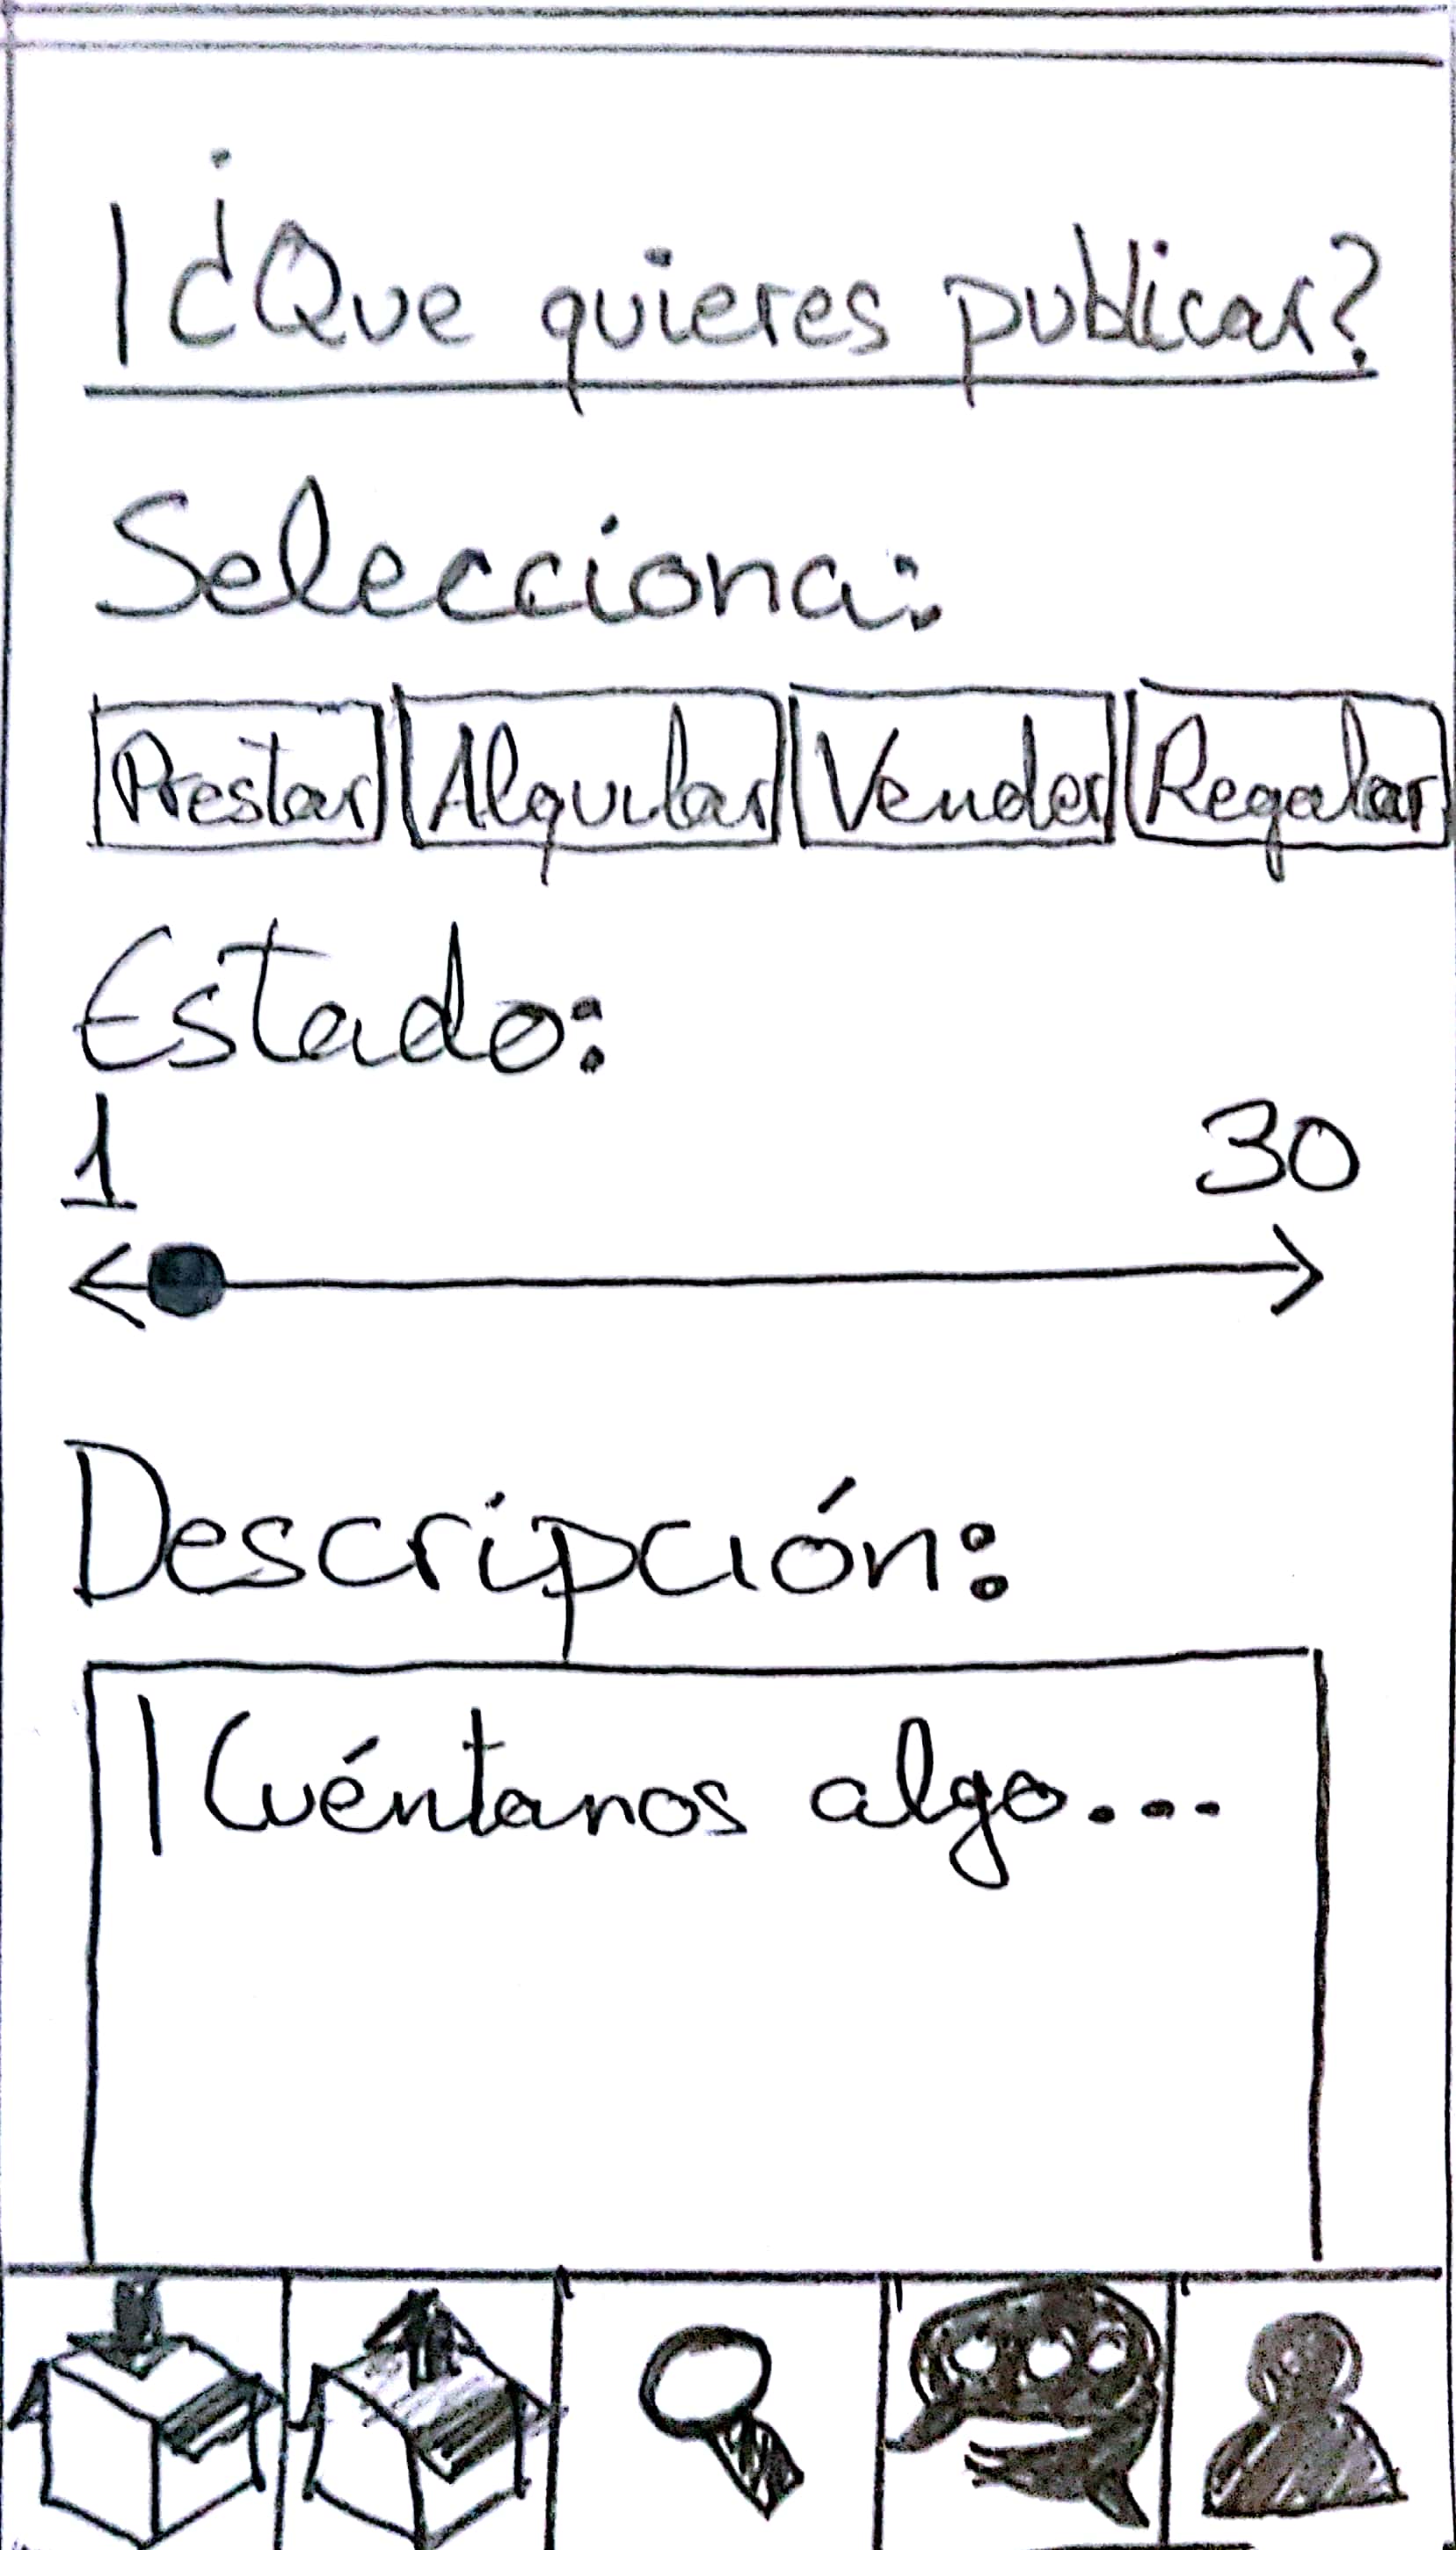 ¿Que quieres publicar?
Selecciona:
Prestar Alquilar Vender Regalar
Estado:
1 30
Descripción:
Cuéntanos algo...